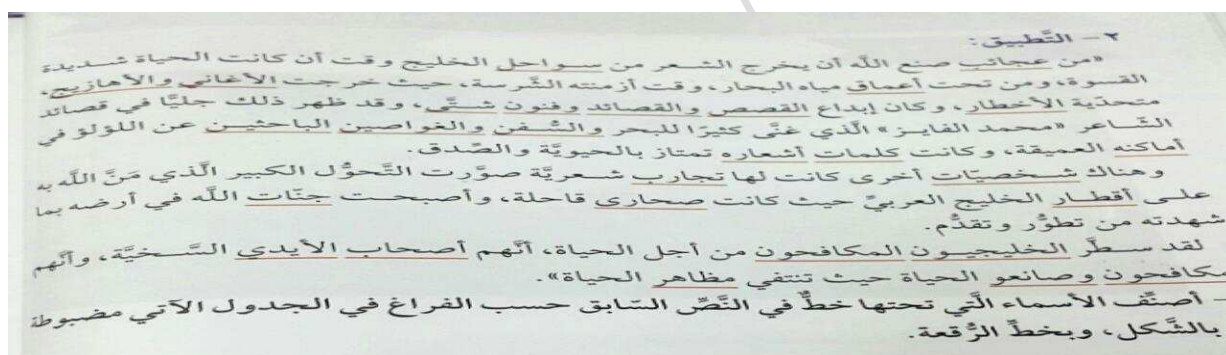 ٢ - التَّطبيق:
«من عجائب صنع الله أن يخرج الشعر من سواحل الخليج وقت أن كانت الحياة شديدة
القسوة، ومن تحت أعماق مياه البحار، وقت أزمنته الشَّرسة، حيث خرجت الأغاني والأهازيج،
متحدّية الأخطار، وكان إبداع القصص والقصائد وفنون شتَّى، وقد ظهر ذلك جليًّا في قصائد
الشَّاعر «محمد الفايز» الَّذي غنَّى كثيرًا للبحر والسُّفن والغواصين الباحثين عن اللؤلؤ في
أماكنه العميقة، وكانت كلمات أشعاره تمتاز بالحيويَّة والصِّدق.
وهناك شخصيّات أخرى كانت لها تجارب شعريَّة صوَّرت التَّحوُّل الكبير الَّذي مَنَّ الله به
على أقطار الخليج العربيِّ حيث كانت صحارى قاحلة، وأصبحت جنّات الله في أرضه بما
شهدته من تطوُّر وتقدُّم.
لقد سطَّر الخليجيون المكافحون من أجل الحياة، أنَّهم أصحاب الأيدي السَّخيَّة، وأنَّهم
مكافحون وصانعو الحياة حيث تنتفي مظاهر الحياة».
- أصنِّف الأسماء الَّتي تحتها خطٌّ في النَّصِّ السّابق حسب الفراغ في الجدول الآتي مضبوطة
بالشَّكل، وبخطِّ الرُّقعة.